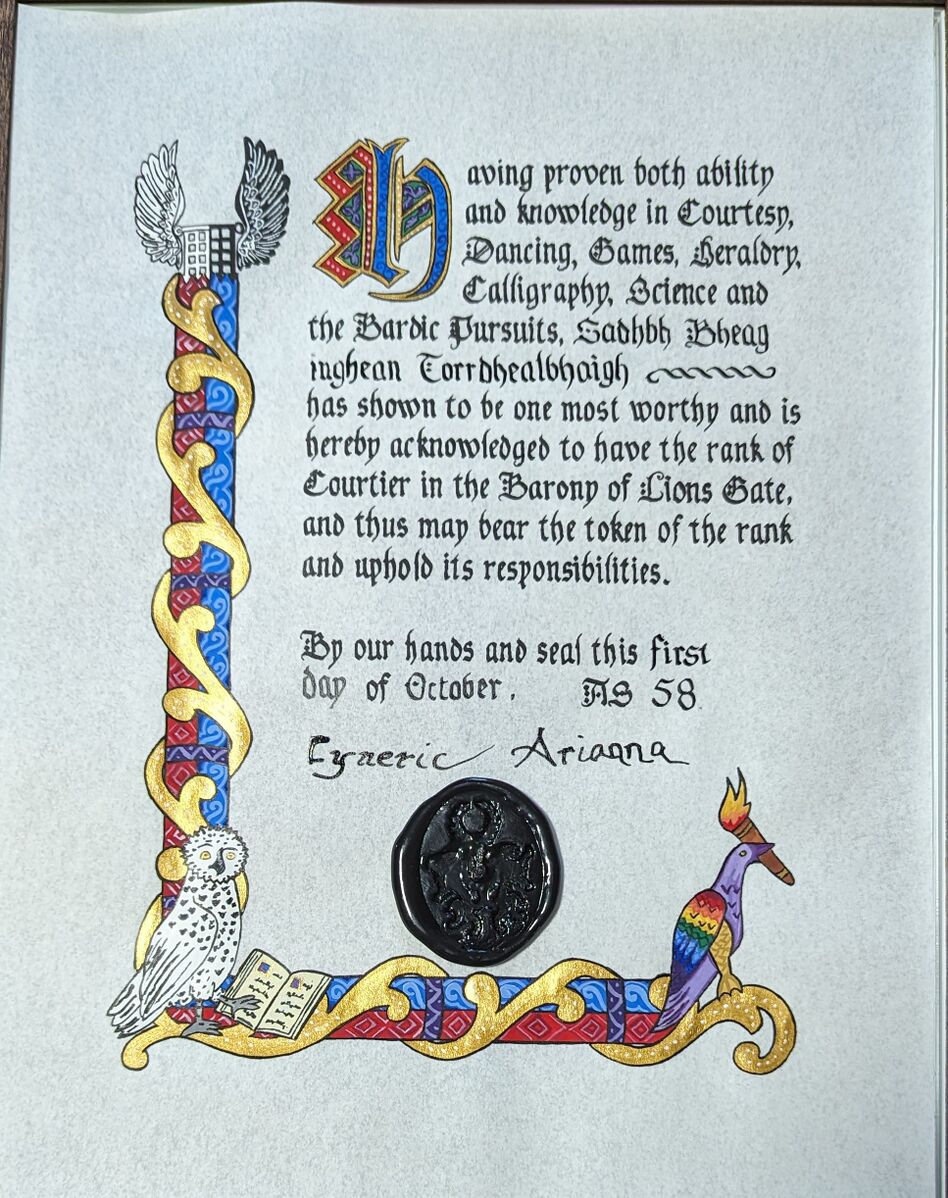 Having proven both ability
and knowledge in Courtesy,
Dancing, Games, Heraldry,
Calligraphy, Science and
the Bardic Pursuits, Sadhbh Bheag
inghean Torrdhealbhaigh
has shown to be one most worthy and is
hereby acknowledged to have the rank of
Courtier in the Barony of Lions Gate,
and thus may bear the token of the rank
and uphold its responsibilities.
By our hands and seal this first
day of October. AS 58
Cyneric Arianna